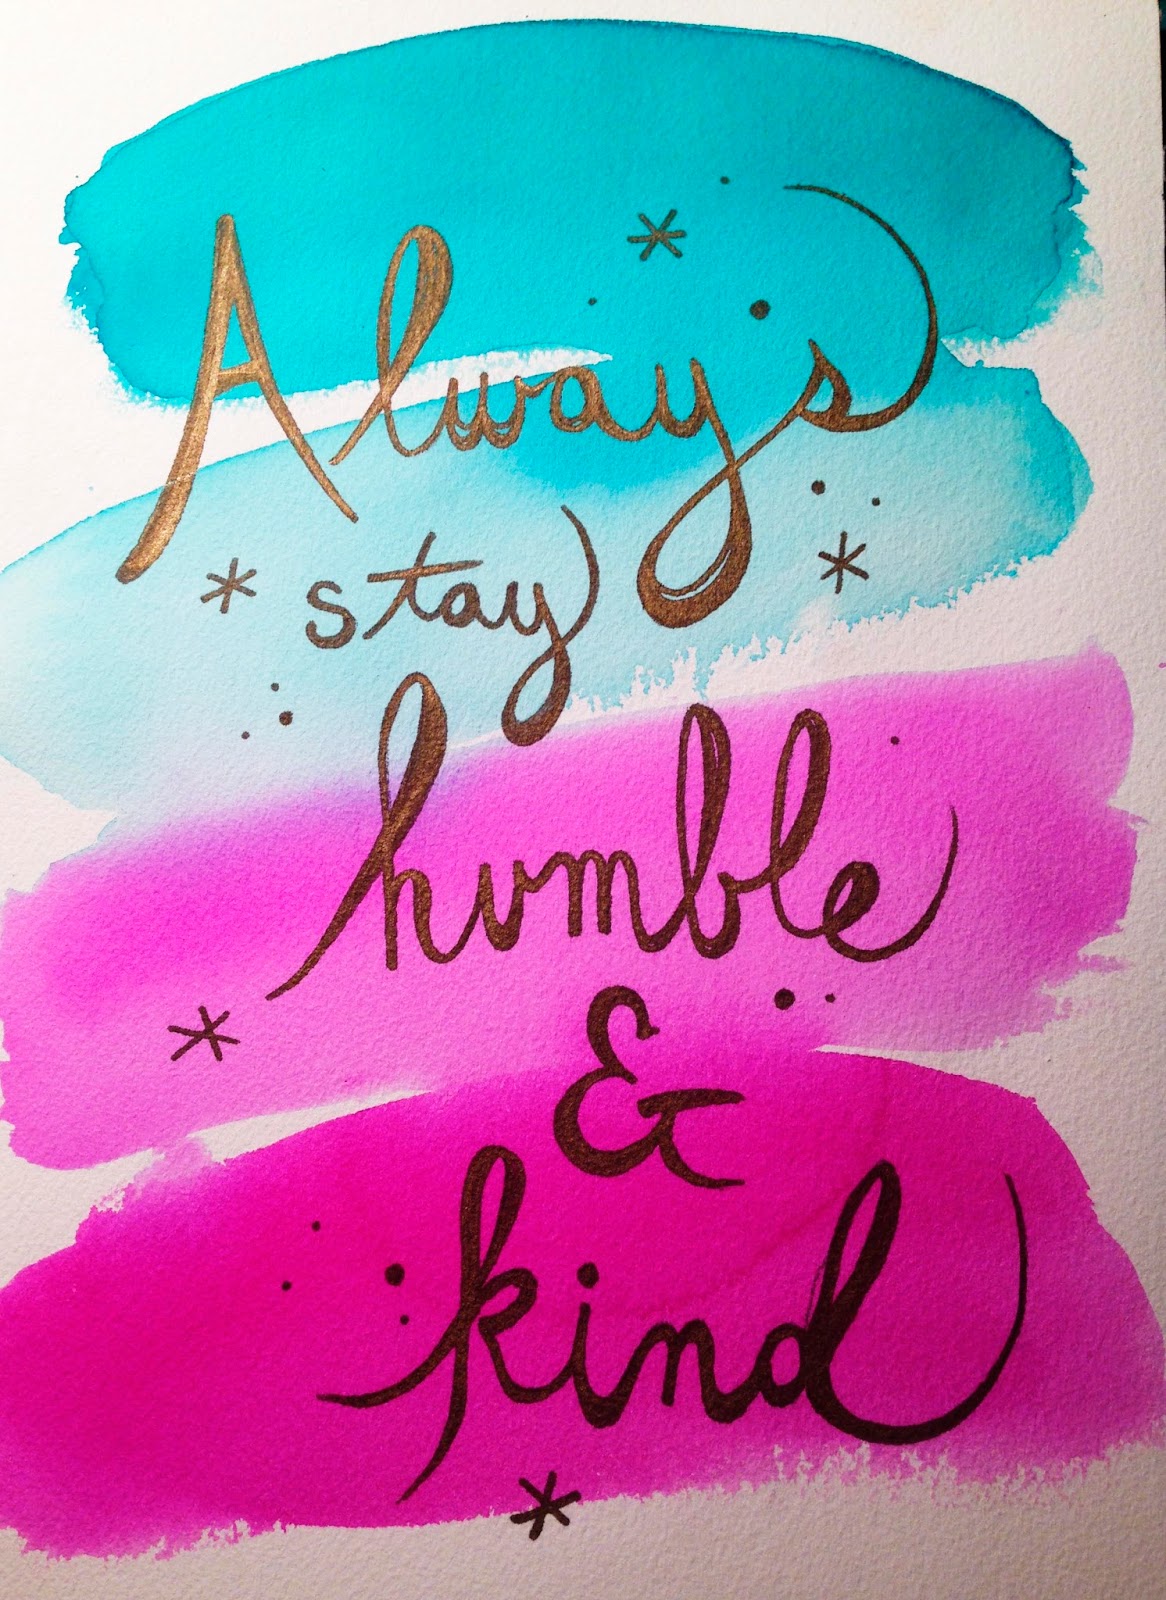 Always
stay
humble
&
kind